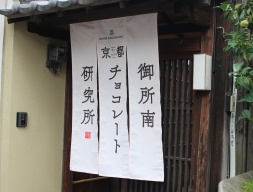 京都
御所南
チョコレート
研究所